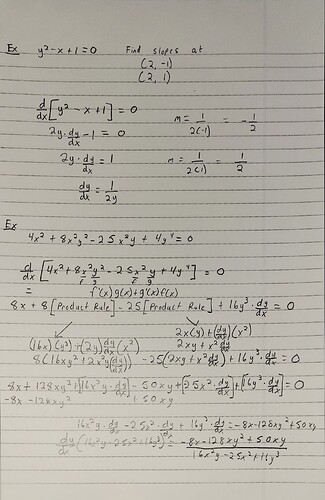 Ex y² - x + 1 = 0 Find slopes at
(2, -1)
(2, 1)
d/dx [y² - x + 1] = 0
m = 1/2(-1) = -1/2
2y · dy/dx - 1 = 0
2y · dy/dx = 1
m = 1/2(1) = 1/2
dy/dx = 1/2y
Ex
4x² + 8x²y² - 25x²y + 4y⁴ = 0
d/dx [4x² + 8x²y² - 25x²y + 4y⁴] = 0
= f'(x)g(x) + g'(x)f(x)
8x + 8[Product Rule] - 25[Product Rule] + 16y³ · dy/dx = 0
2x(y) + (dy/dx)(x²)
(16x)(y²) + (2y)(dy/dx)(x²) 2xy + x² dy/dx
8(16xy² + 2x²y dy/dx) - 25(2xy + x² dy/dx) + 16y³ · dy/dx = 0
8x + 128xy² + 16x²y · dy/dx - 50xy + 25x² · dy/dx + 16y³ · dy/dx = 0
-8x - 128xy² + 50xy
16x²y · dy/dx - 25x² · dy/dx + 16y³ · dy/dx = -8x - 128xy² + 50xy
dy/dx (16x²y - 25x² + 16y³) = -8x - 128xy² + 50xy
16x²y - 25x² + 16y³